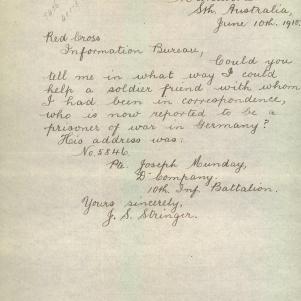 Sth. Australia,
June 10th. 1918.
Red Cross
Information Bureau,
Could you
tell me in what way I could
help a soldier friend with whom
I had been in correspondence,
who is now reported to be a
prisoner of war in Germany?
His address was:
No. 5846.
Pte. Joseph Munday,
D. Company.
10th. Inf. Battalion.
Yours sincerely,
J. S. Stringer.